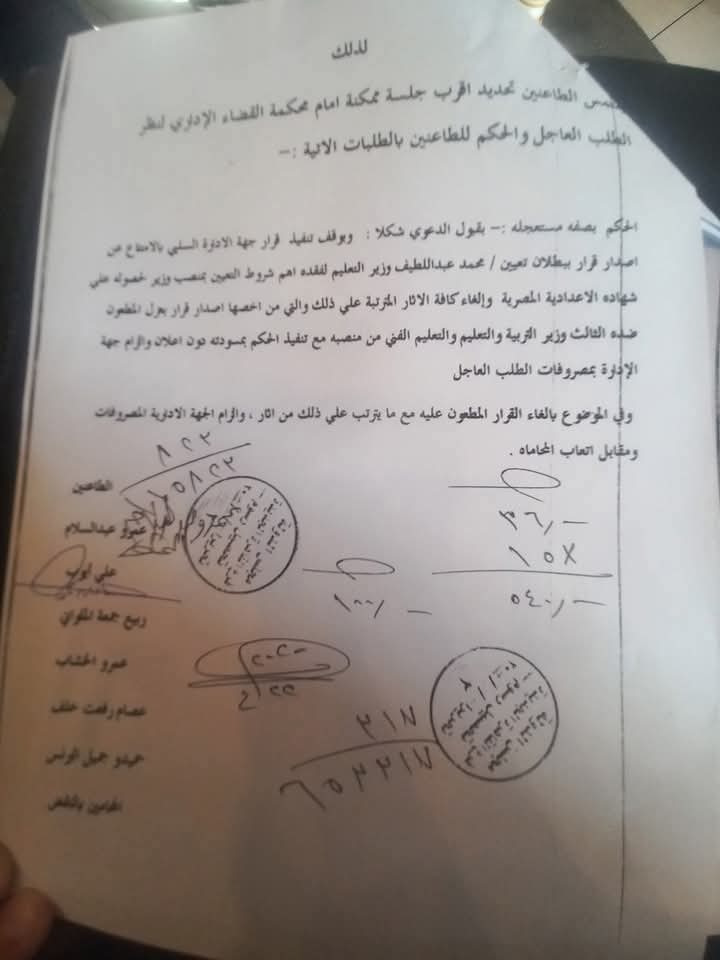 لذلك
الطاعنين تحديد اقرب جلسة ممكنة امام محكمة القضاء الإداري لنظر
الطلب العاجل والحكم للطاعنين بالطلبات الاتية :-
الحكم بصفه مستعجله :- بقبول الدعوي شكلا : وبوقف تنفيذ قرار جهة الادارة السلبي بالامتناع عن
اصدار قرار ببطلان تعيين / محمد عبداللطيف وزير التعليم لفقده اهم شروط التعيين بمنصب وزير لحصوله علي
شهاده الاعدادية المصرية وإلغاء كافة الاثار المترتبة علي ذلك والتي من اخصها اصدار قرار بعزل المطعون
ضده الثالث وزير التربية والتعليم والتعليم الفني من منصبه مع تنفيذ الحكم بمسودته دون اعلان والزام جهة
الإدارة بمصروفات الطلب العاجل
وفي الموضوع بالغاء القرار المطعون عليه مع ما يترتب علي ذلك من اثار ، والزام الجهة الادارية المصروفات
ومقابل اتعاب المحاماه .
٨٢٢
١٥٨٢٢
الطاعنين
٣٦٫—
عمرو عبدالسلام
١٥X
علي ايوب
٥٤٠٫—
١٠٠٫—
ربيع جمعة الملواني
عمرو الخشاب
عصام رفعت خلف
٢١٧
حميدو جميل البرنس
٦٥٢٢١٧
المحامين بالنقض